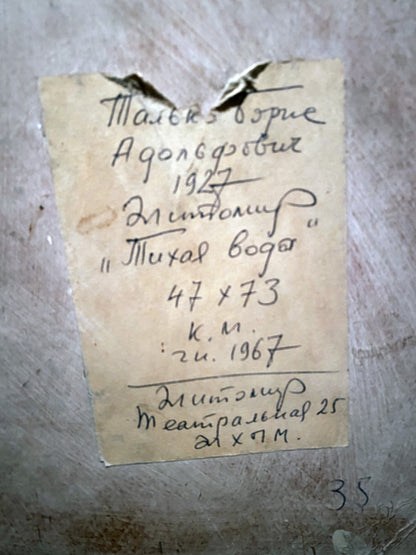 Талько Борис
Адольфович
1927
Житомир
„Тихая вода"
47 х 73
к. м.
1967
Житомир
Театральная 25
ЖХПМ.
35